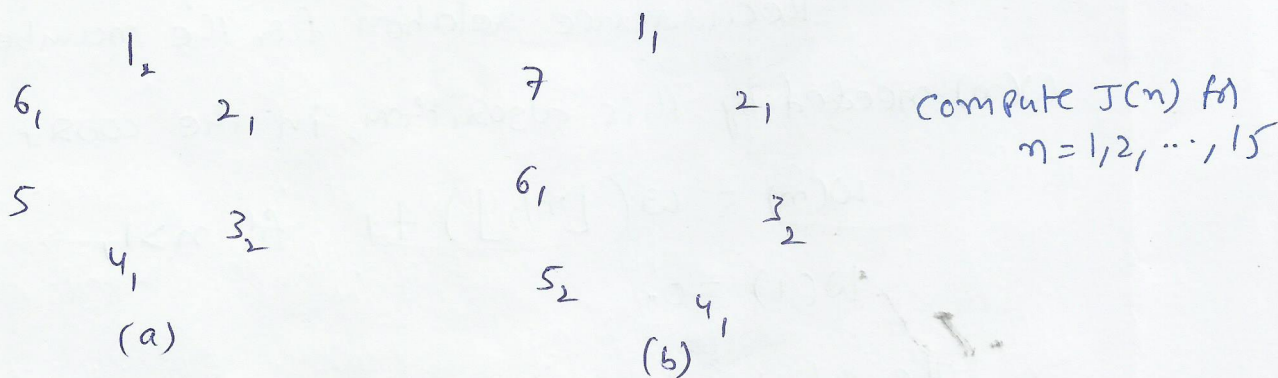 1₂
6₁ 2₁
5 3₂
4₁
(a)
1₁
7 2₁
6₁ 3₂
5₂ 4₁
(b)
compute J(n) for
n = 1, 2, ..., 15